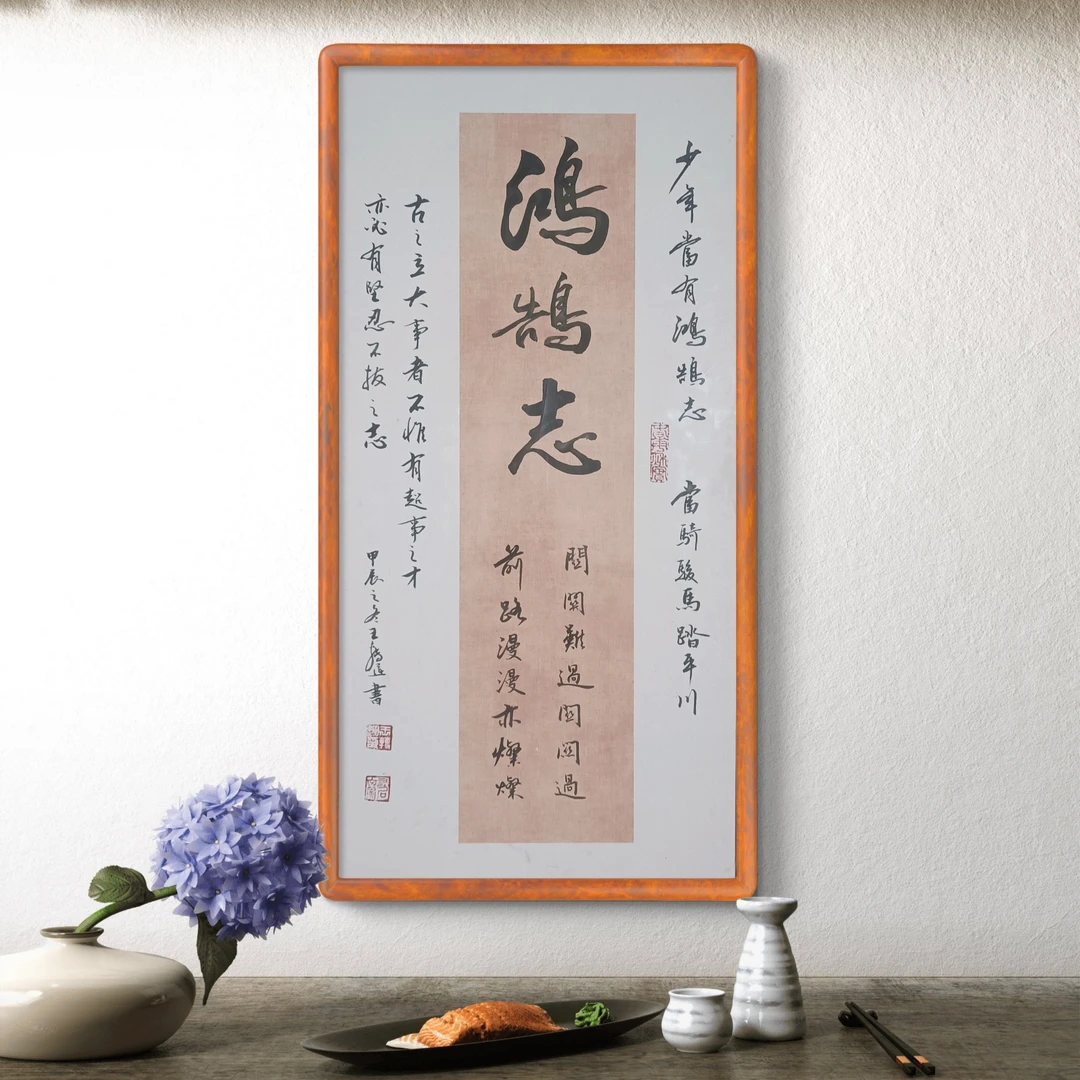 少年當有鴻鵠志 當騎駿馬踏平川
鴻鵠志
關關難過關關過
前路漫漫亦燦燦
古之立大事者不惟有超事之才
亦必有堅忍不拔之志
甲辰之冬王書